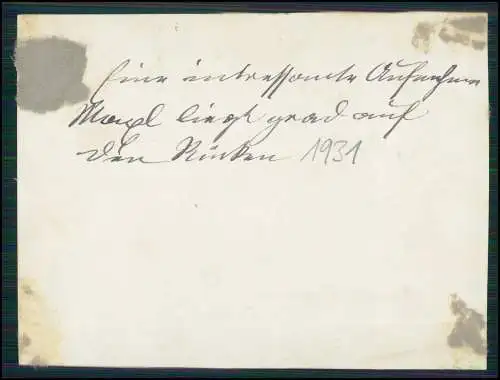 Eine interessante Aufnahme
Maxl liegt grad auf
den Rücken 1931